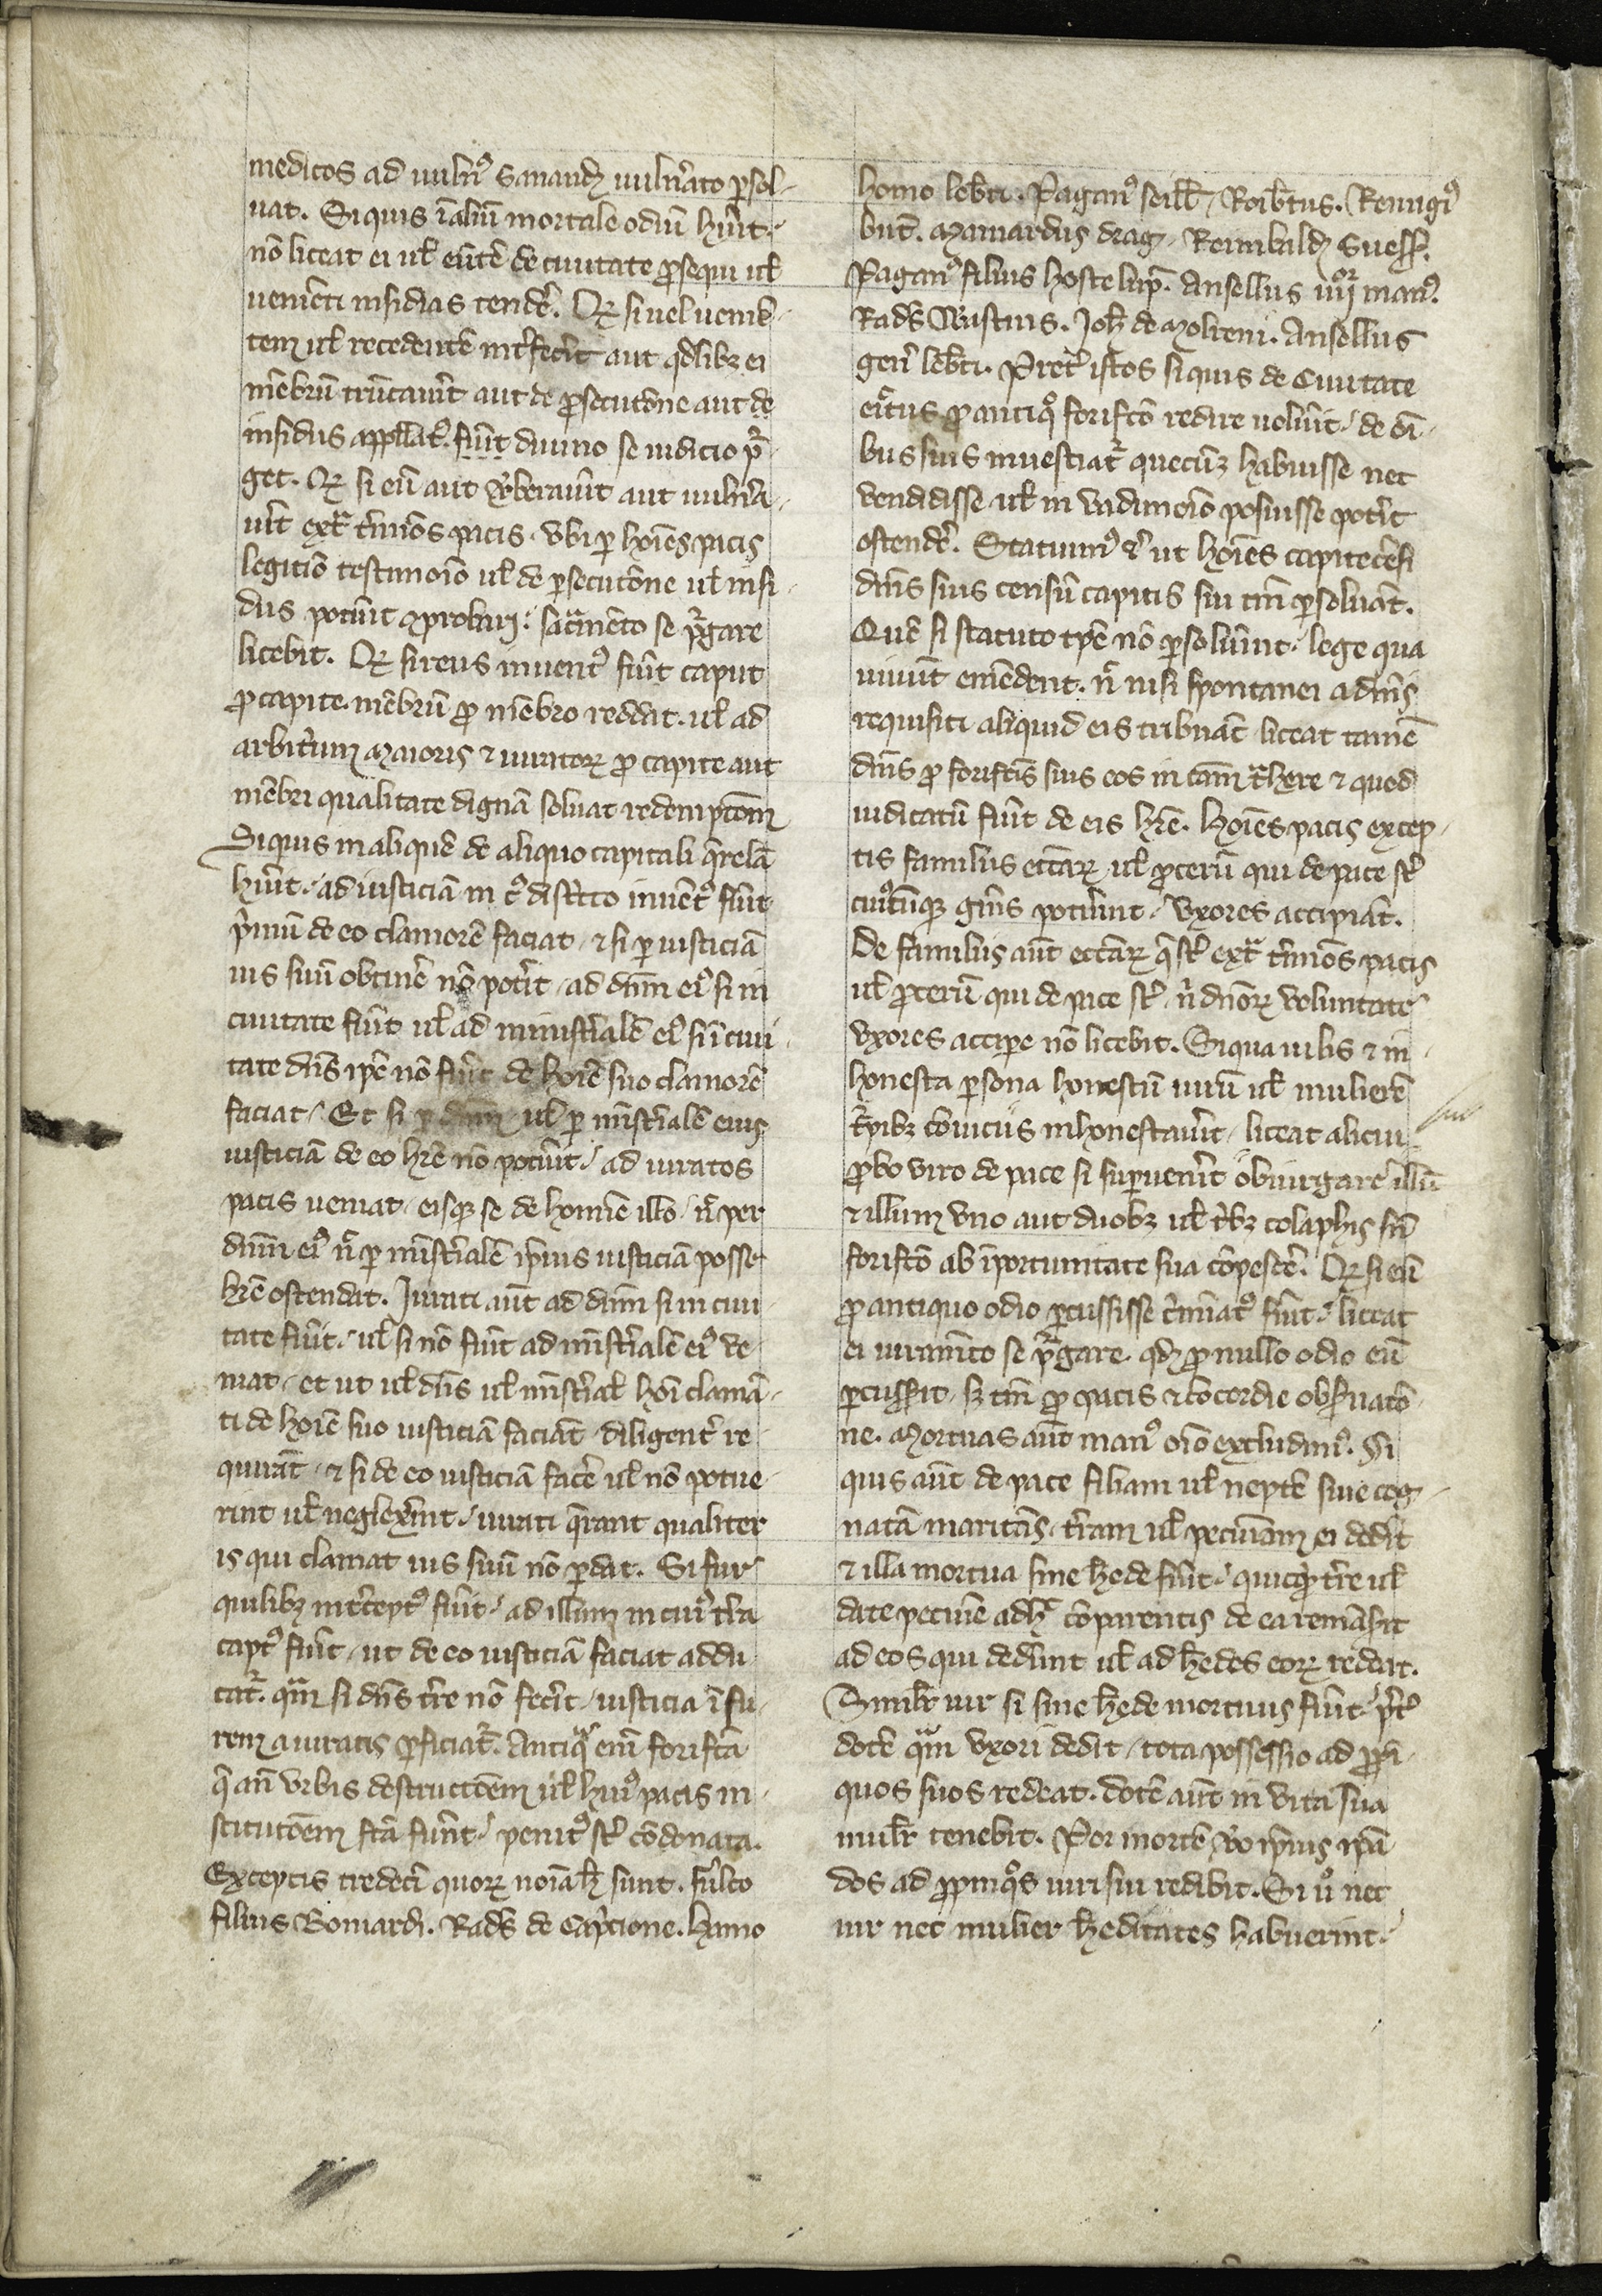 medicos ad uuln⁹ sanand uuln̾ato ꝑsol-
uat. Si quis ī aliū mortale odiū hu̾it.
nō liceat ei ul̕ eūtē de ciuitate ꝓsequi ul̕
uenīēti insidias tend̾e. Qꝫ si uel uenīē-
tem ul̕ recedentē int̾fec̾it aut qdlibꝫ ei
mēbrū trūcau̾it aut de ꝓsecutōne aut de
insidiis appellat⁹ fu̾it diuino se iudicio pur-
get. Qꝫ si eū aut v̾berau̾it aut uuln̾a-
u̾it ext̾ t̾mīos pacis. vbi ꝑ hoīes pacis
legitīo testimōio ul̕ de ꝑsecutōne ul̕ insi-
diis pot̾uit ꝯprobari. sac̾mēto se purgare
licebit. Qꝫ si reus inuent⁹ fu̾it caput
ꝓ capite. mēbrū ꝓ mēbro reddat. ul̕ ad
arbitrium maioris ⁊ iuratorꝝ ꝓ capite aut
mēbri qualitate dignā soluat redemptōem
Si quis in aliquē de aliquo capitali q̄relā
hu̾it. ad iusticiā in c⁹ dist̾cto inuēt⁹ fu̾it
p̾mū de eo clamorē faciat. ⁊ si ꝑ iusticiā
ius suū obtin̾e nō pot̾it. ad dn̄m ei⁹ si in
ciuitate fu̾it ul̕ ad minist̾ialē ei⁹ si ī ciui-
tate dn̄s ip̄e nō fu̾it de hoīe suo clamorē
faciat. Et si ꝑ dn̄m ul̕ ꝑ mīst̾ialē eius
iusticiā de eo hr̄e nō pot̾uit. ad iuratos
pacis ueniat. eisqꝫ se de homīe illo. n̄ per
dn̄m ei⁹ n̄ ꝑ mīst̾ialē ip̄ius iusticiā posse
hr̄e ostendat. Iurati aūt ad dn̄m si in ciui-
tate fu̾it. ul̕ si nō fu̾it ad mīst̾ialē ei⁹ ve-
niat. et ut ul̕ dn̄s ul̕ mīst̾ial̕ hoī clamā-
ti de hoīe suo iusticiā faciāt. diligent̾ re-
quirāt. ⁊ si de eo iusticiā fac̾e ul̕ nō potue-
rint ul̕ neglex̾int. iurati q̄rant qualiter
is qui clamat ius suū nō ꝑdat. Si fur
quilibꝫ int̾cept⁹ fu̾it. ad illum in cui⁹ t̾ra
capt⁹ fu̾it. ut de eo iusticiā faciat addu-
cat̾. qm̄ si dn̄s t̾re nō fec̾it. iusticia ī fu-
rem a iuratis ꝑficiat̾. Antiqᵃ em̄ forifc̄a
q̄ an̄ vrbis destructōem ul̕ hui⁹ pacis in-
stitutōem fc̄a fu̾nt. penit⁹ st̄ cōdonata.
Exceptis tredeci quorꝝ noīa h̄ sunt. fulco
filius Bomardi. Rad̄s de Cap̾cione. hamo
homo leb̄ti. Pagan⁹ seill̄. Rotb̄tus. Remigi⁹
but̄. Mainardus drag̾. Reimbald Suess̄.
Pagan⁹ filius hostelup̄. Ansellus iiij man⁹.
Rad̄s Wustins. Joh̄ de molreni. Ansellus
gen̾ leb̄ti. Pret̾ istos si quis de Ciuitate
eiectus ꝓ antiqᵒ forifc̄o redire uolu̾it. de oī-
bus suis inuestiat̾ quecūqꝫ habuisse nec
vendidisse ul̕ in vadimōio posuisse pot̾it
ostend̾e. Statuim⁹ ⁊ ut hoīes capite cēsi
dn̄is suis censū capitis sui tm̄ ꝑsoluāt.
Quē si statuto tp̄e nō ꝑsolu̾int. lege qua
uiuūt emēdent. n̄ nisi spontanei a dn̄is
requisiti aliquid eis tribuāt. liceat tamē
dn̄is ꝓ forifc̄is suis eos in cām t̾here ⁊ quod
iudicatū fu̾it de eis hr̄e. hoīes pacis excep-
tis familiis ecc̄arꝝ ul̕ ꝓcerū qui de pace st̄
cui⁹cūqꝫ gn̾is potu̾int. vxores accipiāt.
De familiis aūt ecc̄arꝝ q̄ st̄ ext̾ t̾mīos pacis
ul̕ ꝓcerū qui de pace st̄. n̄ dn̄orꝝ voluntate
vxores accipe nō licebit. Si qua uilis ⁊ in-
honesta ꝑsona honestū uirū ul̕ mulierē
t̾pibꝫ cōuiciis inhonestau̾it. liceat alicui
ꝓbo viro de pace si suꝑuen̾it obiurgare illū
⁊ illum vno aut duobꝫ ul̕ t̾bꝫ colaphis sn̄
forifc̄o ab īportunitate sua cōpesc̾e. Qꝫ si eū
ꝓ antiquo odio ꝑcussisse c̾minat⁹ fu̾it. liceat
ei iuramēto se purgare. qd ꝓ nullo odio eū
ꝑcusserit. sꝫ tm̄ ꝓ pacis ⁊ cōcordie obs̾uatō-
ne. Mortuas aūt man⁹ oīo excludim⁹. Si
quis aūt de pace filiam ul̕ neptē siue cog-
natā maritās. t̾ram ul̕ pecuniam ei ded̾it
⁊ illa mortua sine h̾ede fu̾it. quicqd t̾re ul̕
date pecunie adh̄ cōparentis de ea remās̾it
ad eos qui ded̾unt ul̕ ad h̾edes eorꝝ redeat.
Similr̄ uir si sine h̾ede mortuus fu̾it. p̾t̾
dotē qᵃm vxori dedit. tota possessio ad ꝓpī-
quos suos redeat. dotē aūt in vita sua
mulr̄ tenebit. Post mortē v̾o ip̄ius ip̄a
dos ad ꝓpinqᵒs uiri sui redibit. Si u̾o nec
uir nec mulier h̾editates habuerint.